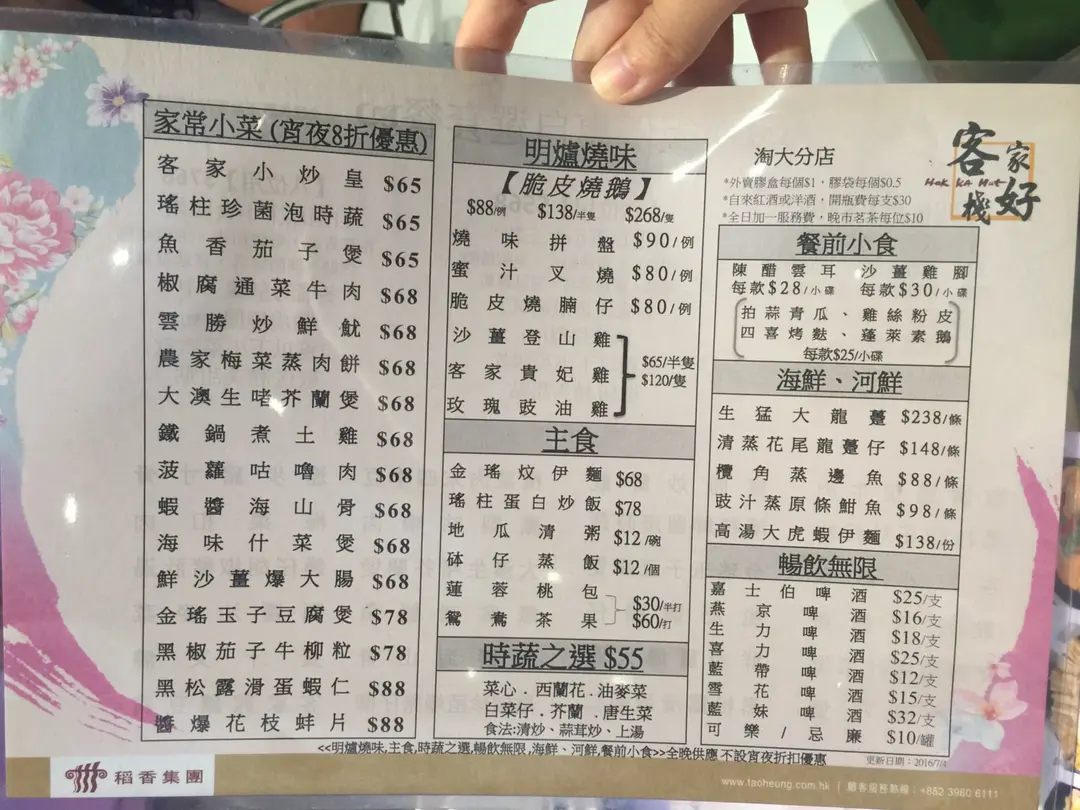 家常小菜 (宵夜8折優惠)
客家小炒皇 $65
瑤柱珍菌泡時蔬 $65
魚香茄子煲 $65
椒腐通菜牛肉 $68
雲勝炒鮮魷 $68
農家梅菜蒸肉餅 $68
大澳生啫芥蘭煲 $68
鐵鍋煮土雞 $68
菠蘿咕嚕肉 $68
蝦醬海山骨 $68
海味什菜煲 $68
鮮沙薑爆大腸 $68
金瑤玉子豆腐煲 $78
黑椒茄子牛柳粒 $78
黑松露滑蛋蝦仁 $88
醬爆花枝蚌片 $88
明爐燒味
【脆皮燒鵝】
$88/例 $138/半隻 $268/隻
燒味拼盤 $90/例
蜜汁叉燒 $80/例
脆皮燒腩仔 $80/例
沙薑登山雞
客家貴妃雞
玫瑰豉油雞
$65/半隻
$120/隻
主食
金瑤炆伊麵 $68
瑤柱蛋白炒飯 $78
地瓜清粥 $12/碗
砵仔蒸飯 $12/個
蓮蓉桃包
鴛鴦茶果
$30/半打
$60/打
時蔬之選 $55
菜心．西蘭花．油麥菜
白菜仔．芥蘭．唐生菜
食法:清炒、蒜茸炒、上湯
淘大分店
*外賣膠盒每個$1，膠袋每個$0.5
*自來紅酒或洋酒，開瓶費每支$30
*全日加一服務費，晚市茗茶每位$10
客家好棧
Hak Ka Hut
餐前小食
陳醋雲耳 沙薑雞腳
每款$28/小碟 每款$30/小碟
拍蒜青瓜、雞絲粉皮
四喜烤麩、蓬萊素鵝
每款$25/小碟
海鮮、河鮮
生猛大龍躉 $238/條
清蒸花尾龍躉仔 $148/條
欖角蒸邊魚 $88/條
豉汁蒸原條魽魚 $98/條
高湯大虎蝦伊麵 $138/份
暢飲無限
嘉士伯啤酒 $25/支
燕京啤酒 $16/支
生力啤酒 $18/支
喜力啤酒 $25/支
藍帶啤酒 $12/支
雪花啤酒 $15/支
藍妹啤酒 $32/支
可樂/忌廉 $10/罐
<<明爐燒味,主食,時蔬之選,暢飲無限,海鮮、河鮮,餐前小食>>全晚供應 不設宵夜折扣優惠
更新日期：2016/7/4
稻香集團
www.taoheung.com.hk | 顧客服務熱線：+852 3960 6111